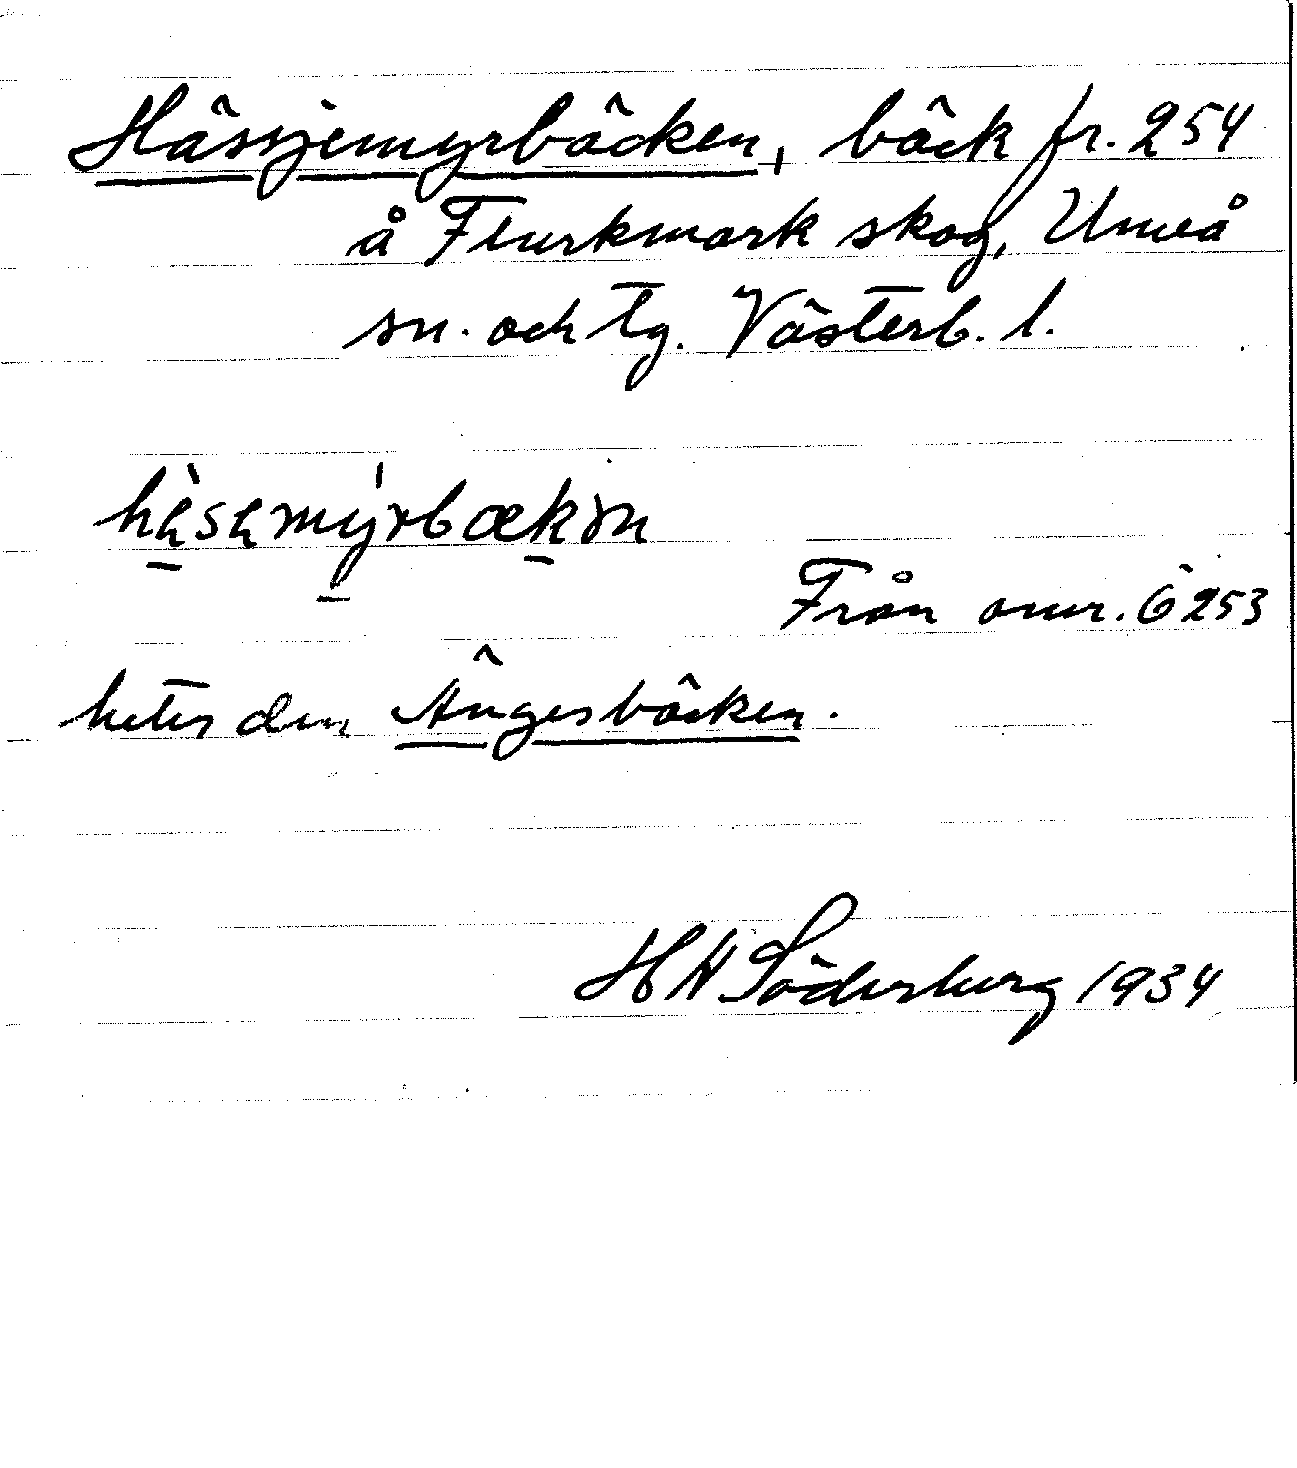 Hässjemyrbäcken, bäck fr. 254
å Flurkmark skog, Umeå
sn. och tg. Västerb. l.
hèsəmýrbækən
Från omr. Ö 253
heter den Ängesbäcken.
H W Söderberg 1934